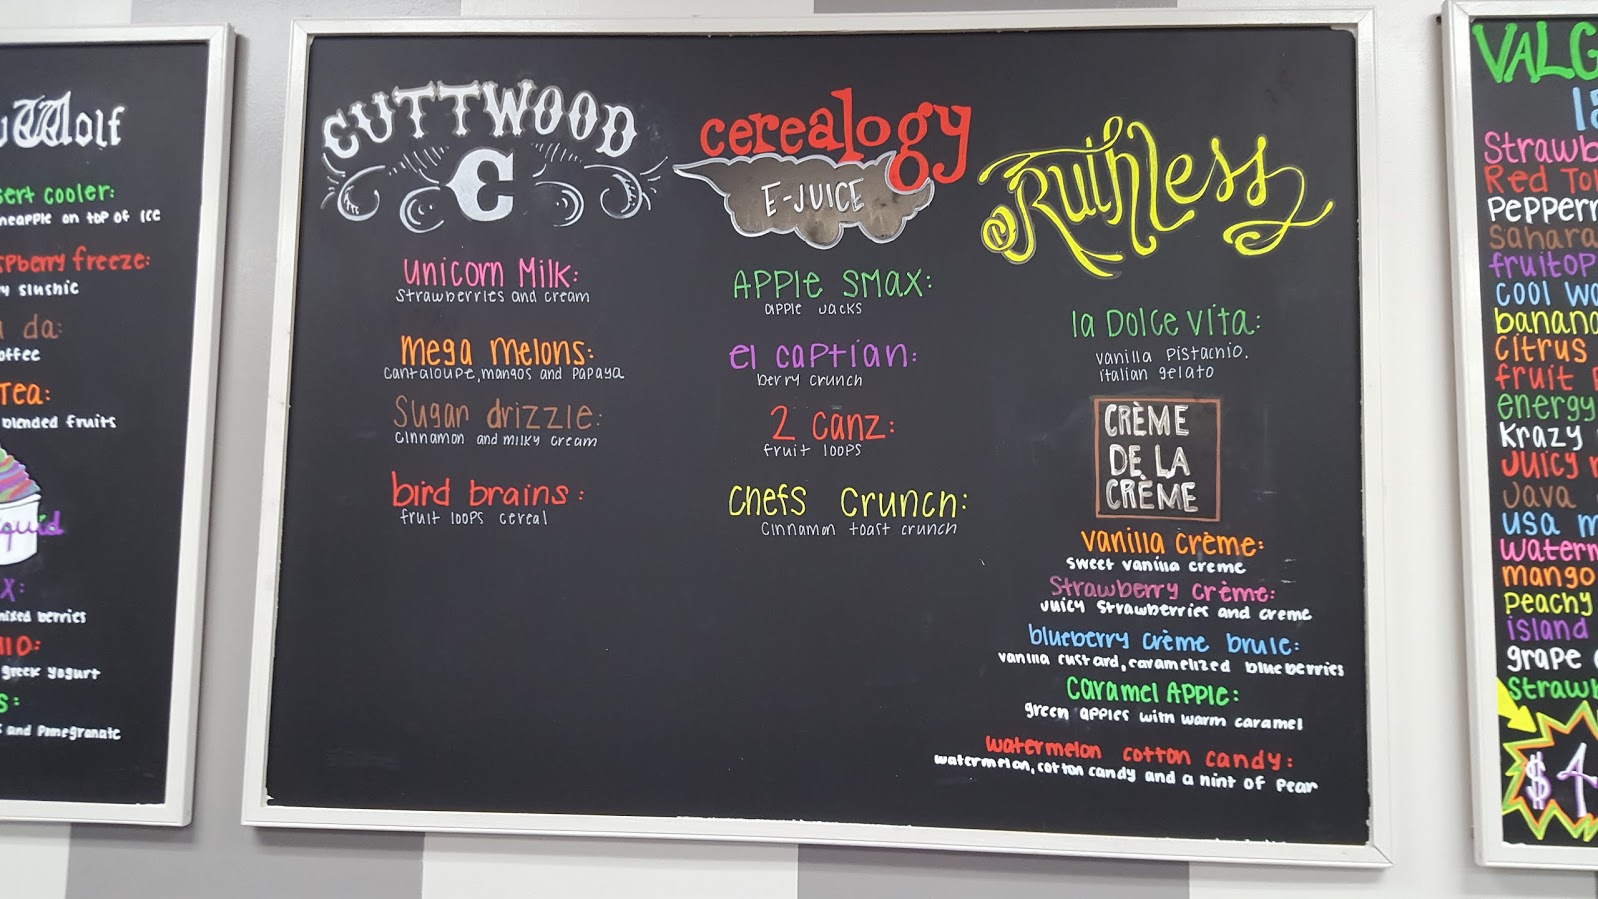 Wolf
cooler:
on top of ice
freeze:
slushie
da:
Tea:
blended fruits
x:
berries
greek yogurt
s:
and Pomegranate
CUTTWOOD
C
unicorn Milk:
Strawberries and cream
Mega Melons:
Cantaloupe, mangos and Papaya
Sugar drizzle:
Cinnamon and milky cream
bird brains:
fruit loops cereal
cerealogy
E-JUICE
Apple Smax:
apple Jacks
el captian:
berry crunch
2 Canz:
fruit loops
Chefs Crunch:
Cinnamon toast crunch
Ruthless
la Dolce Vita:
Vanilla Pistachio.
italian gelato
CRÈME
DE LA
CRÈME
Vanilla Crème:
Sweet Vanilla Creme
Strawberry Crème:
Juicy Strawberries and creme
blueberry Crème brule:
Vanilla custard, caramelized blueberries
Caramel Apple:
green apples with warm caramel
Watermelon cotton candy:
watermelon, cotton candy and a hint of Pear
VALG
la
Strawb
Red Tor
Pepperm
Sahara
fruitop
Cool Wa
banana
Citrus
fruit
energy
Krazy
Juicy
Java
USA M
Waterm
mango
Peachy
island
grape
Strawb
$